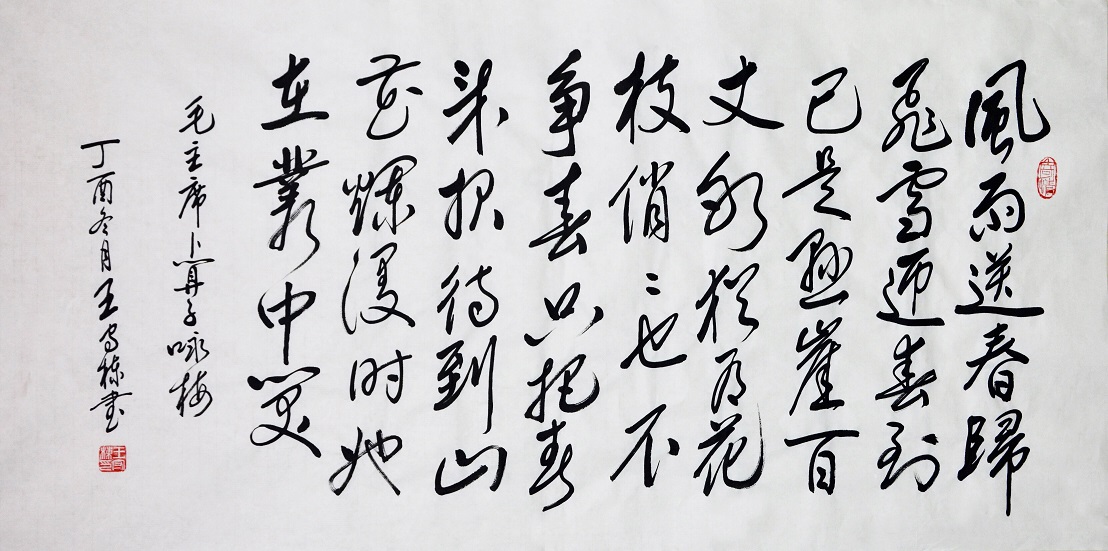 風雨送春歸
飛雪迎春到
已是懸崖百
丈冰猶有花
枝俏〻也不
争春只把春
来报待到山
花爛漫时她
在叢中笑
毛主席卜算子咏梅
丁酉冬月王守棟書